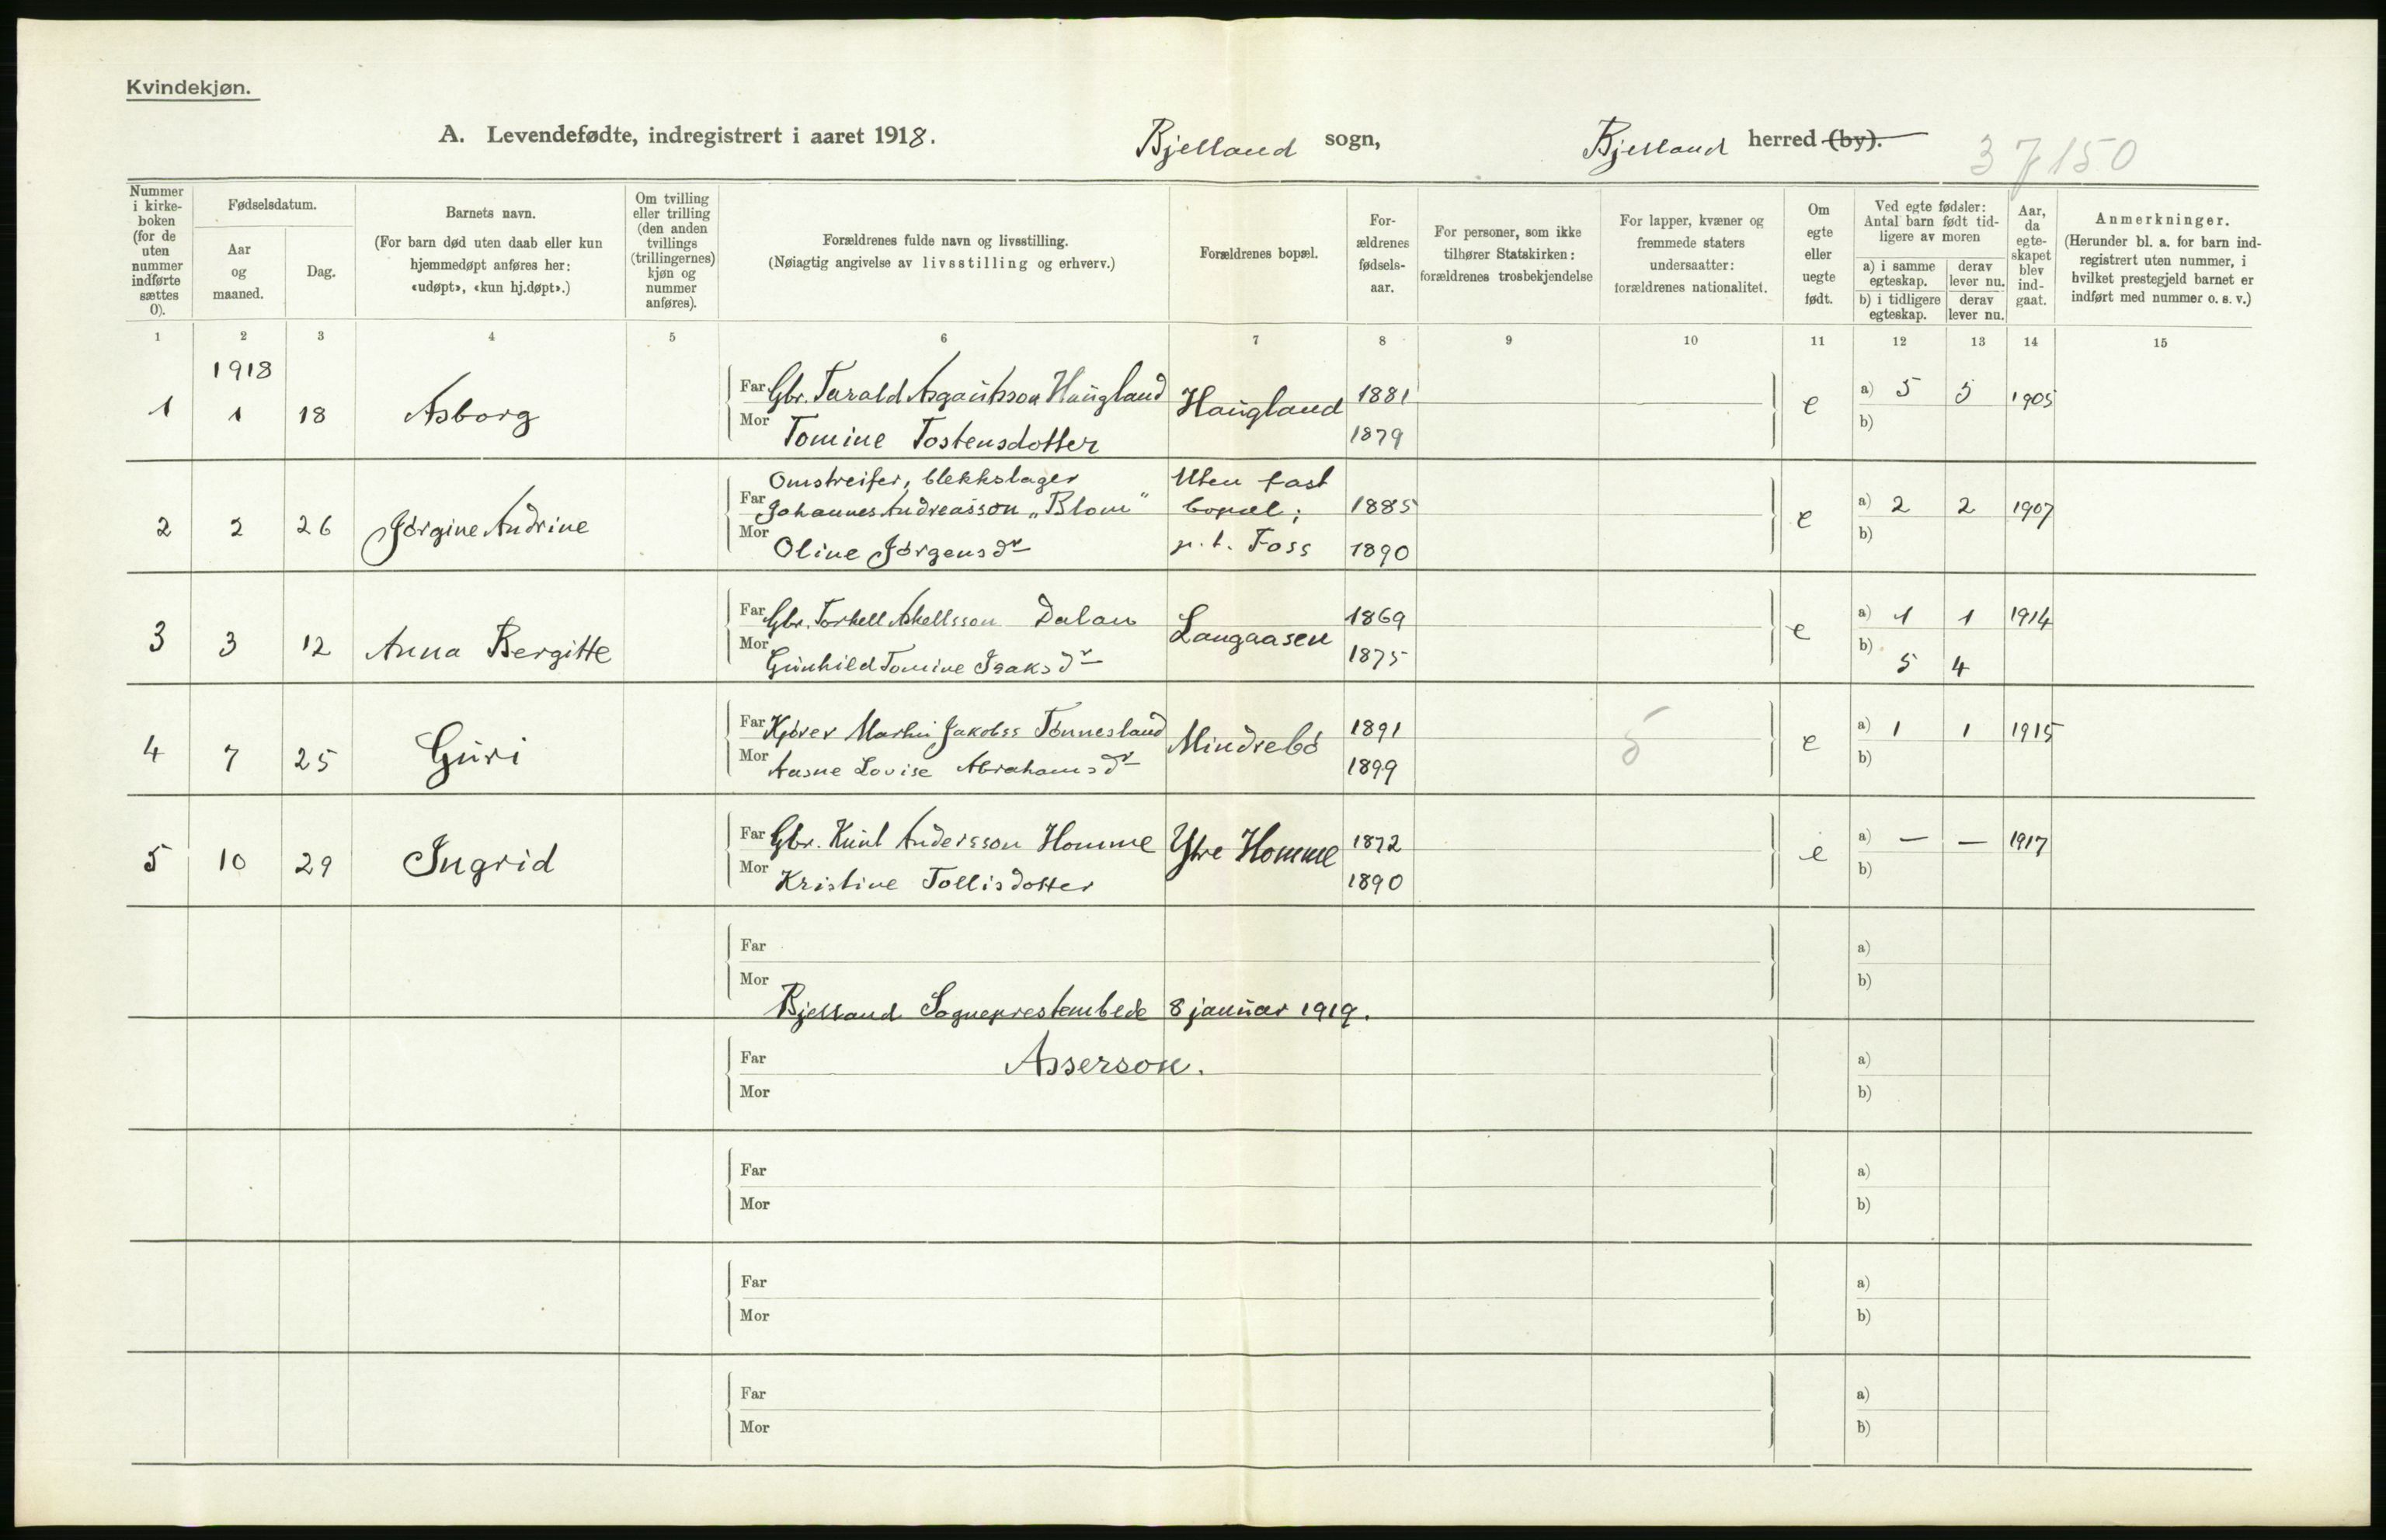 Kvindekjøn.
A. Levendefødte, indregistrert i aaret 1918. Bjelland sogn, Bjelland herred (by). 37150
Nummer i kirkeboken (for de uten nummer indførte sættes 0).
Fødselsdatum.
Aar og maaned.
Dag.
Barnets navn.
(For barn død uten daab eller kun hjemmedøpt anføres her: «udøpt», «kun hj.døpt».)
Om tvilling eller trilling (den anden tvillings (trillingernes) kjøn og nummer anføres).
Forældrenes fulde navn og livsstilling.
(Nøiagtig angivelse av livsstilling og erhverv.)
Forældrenes bopæl.
Forældrenes fødselsaar.
For personer, som ikke tilhører Statskirken: forældrenes trosbekjendelse
For lapper, kvæner og fremmede staters undersaatter: forældrenes nationalitet.
Om egte eller uegte født.
Ved egte fødsler: Antal barn født tidligere av moren
a) i samme egteskap. derav lever nu.
b) i tidligere egteskap. derav lever nu.
Aar, da egteskapet blev indgaat.
Anmerkninger.
(Herunder bl. a. for barn indregistrert uten nummer, i hvilket prestegjeld barnet er indført med nummer o. s. v.)
1 2 3 4 5 6 7 8 9 10 11 12 13 14 15
1918
1 1 18 Asborg Far Gbr. Tarald Asgautsson Haugland Haugland 1881 e a) 5 5 1905
Mor Tomine Tostensdotter 1879 b)
Omstreifer, blekkslager Uten fast
2 2 26 Jørgine Andrine Far Johannes Andreasson „Blom" bopæl; 1885 e a) 2 2 1907
Mor Oline Jørgensdr p. t. Foss 1890 b)
3 3 12 Anna Bergitte Far Gbr. Torkell Askellsson Dalan Langaasen 1869 e a) 1 1 1914
Mor Gunhild Tomine Isaksdr 1875 b) 5 4
4 7 25 Guri Far Kjører Martin Jakobss Tønnesland Mindrebø 1891 e a) 1 1 1915
Mor Aasne Lovise Abrahamsdr 1899 b)
5 10 29 Ingrid Far Gbr. Knut Andersson Homme Ytre Homme 1872 e a) — — 1917
Mor Kristine Tollisdotter 1890 b)
Far a)
Mor b)
Bjelland Sogneprestembede 8 januar 1919.
Far Asserson. a)
Mor b)
Far a)
Mor b)
Far a)
Mor b)
Far a)
Mor b)